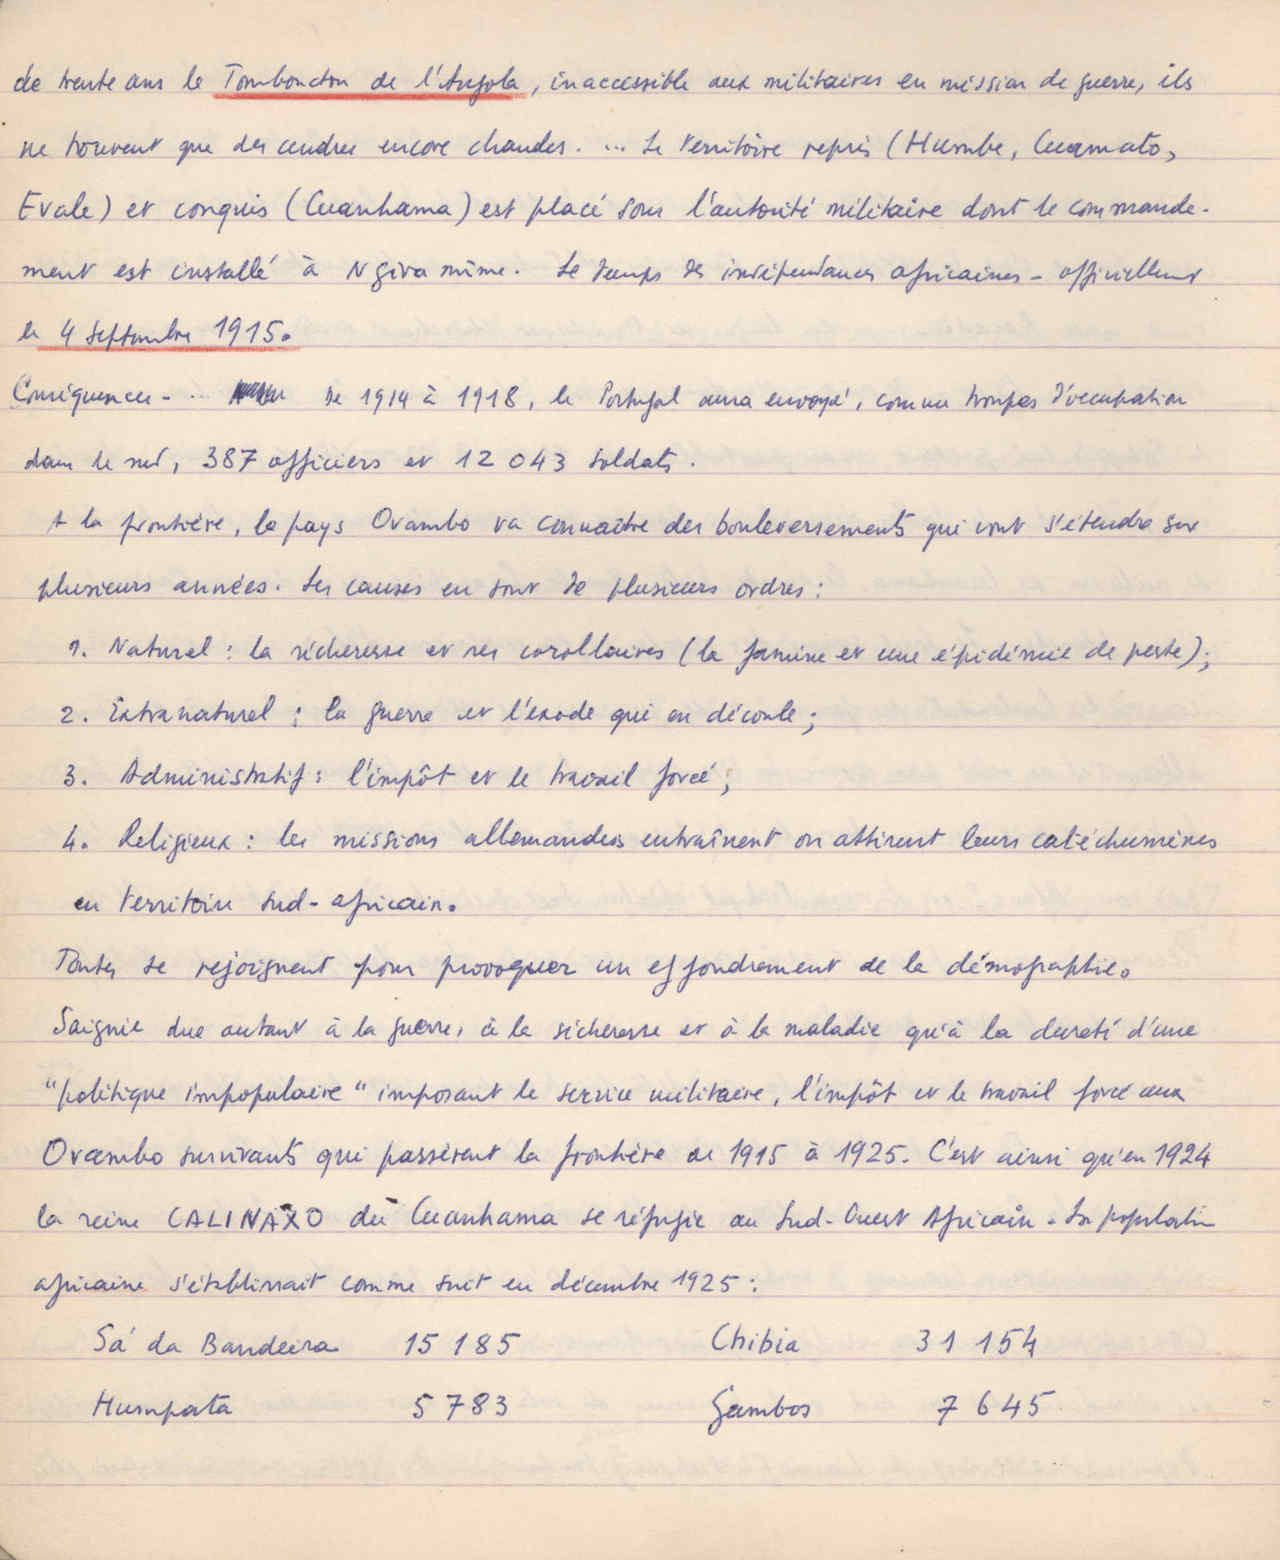 de trente ans le Tombouctou de l'Angola, inaccessible aux militaires en mission de guerre, ils
ne trouvent que des cendres encore chaudes. ... Le territoire repris (Humbe, Cuamato,
Evale) et conquis (Cuanhama) est placé sous l'autorité militaire dont le commande-
ment est installé à Ngiva même. Le temps des indépendances africaines - officiellement
le 4 septembre 1915.
Conséquences - .. De 1914 à 1918, le Portugal aura envoyé, comme troupes d'occupation
dans le sud, 387 officiers et 12 043 soldats.
A la frontière, le pays Ovambo va connaître des bouleversements qui vont s'étendre sur
plusieurs années. Les causes en sont de plusieurs ordres :
1. Naturel : la sécheresse et ses corollaires (la famine et une épidémie de peste) ;
2. Extranaturel : la guerre et l'exode qui en découle ;
3. Administratif : l'impôt et le travail forcé ;
4. Religieux : les missions allemandes entraînent ou attirent leurs catéchumènes
en territoire sud-africain.
Toutes se rejoignent pour provoquer un effondrement de la démographie.
Saignée due autant à la guerre, à la sécheresse et à la maladie qu'à la dureté d'une
"politique impopulaire" imposant le service militaire, l'impôt et le travail forcé aux
Ovambo survivants qui passèrent la frontière de 1915 à 1925. C'est ainsi qu'en 1924
la reine CALINAXO du Cuanhama se réfugie au Sud-Ouest Africain. La population
africaine s'établissait comme suit en décembre 1925 :
Sá da Bandeira 15 185 Chibia 31 154
Humpata 5 783 Gambos 7 645